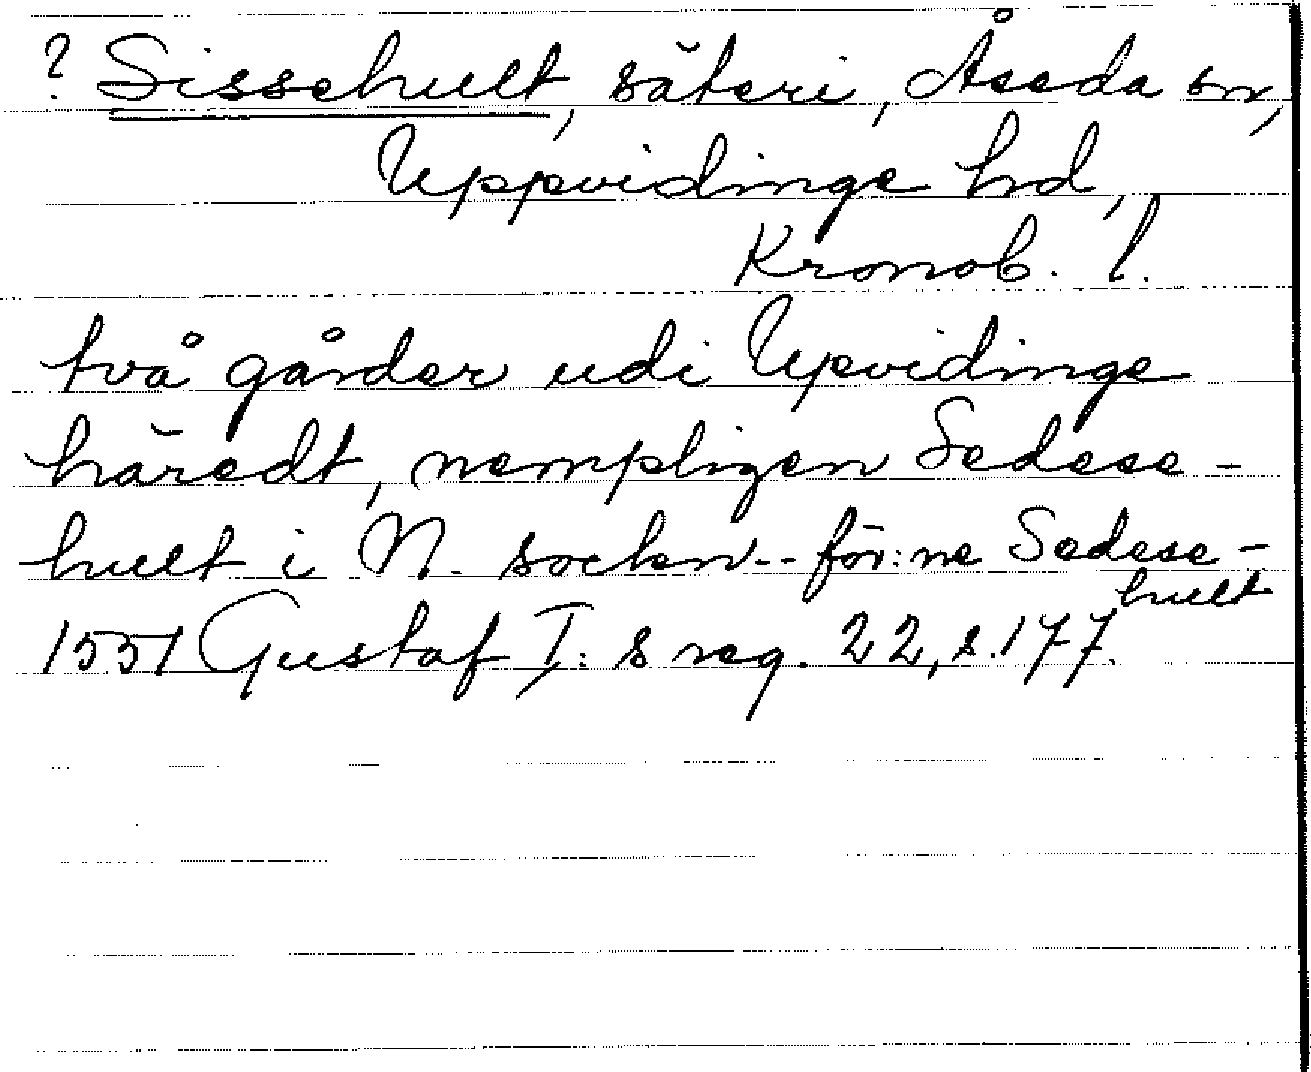 ? Sissehult, säteri, Åseda sn,
Uppvidinge hd,
Kronob. l.
två gårder udi Upvidinge
häredt, nempligen Sedese-
hult i N. sockn -- för:ne Sedese-
hult
1551 Gustaf I:s reg. 22, s. 177.